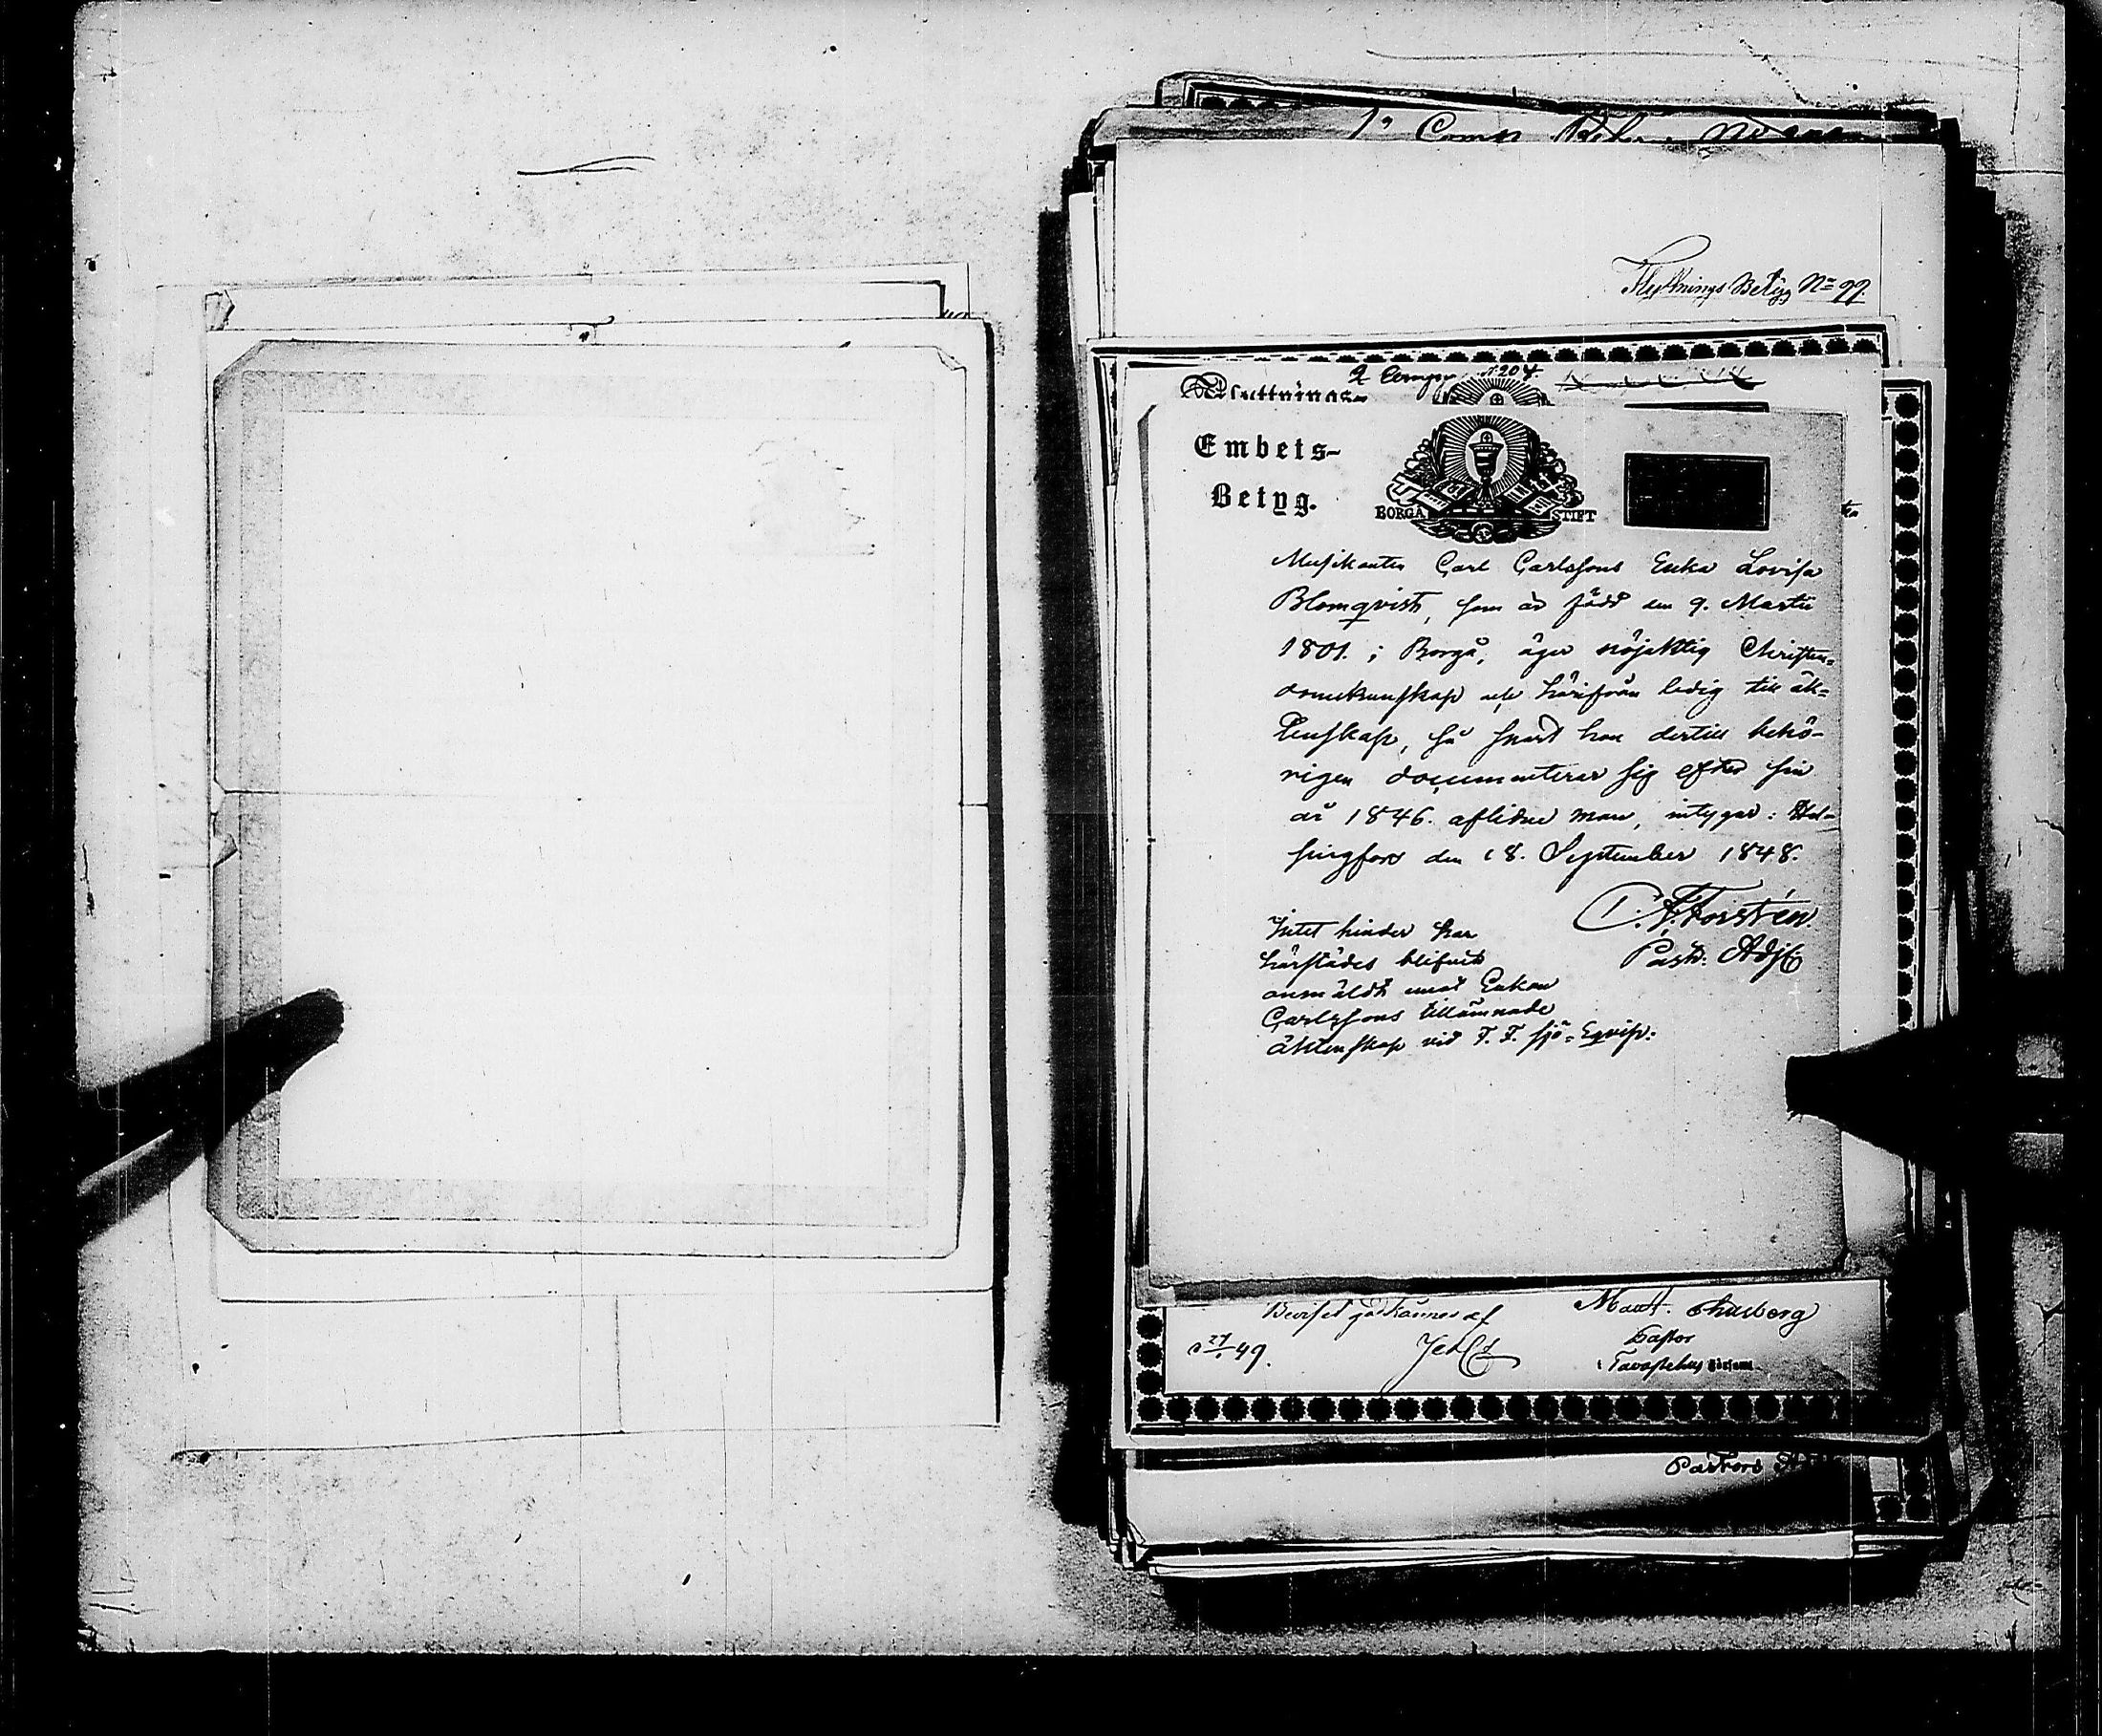 1a Comp
Flyttnings Betyg No 99.
2 Comp No 204
Flyttnings-
Embets-
Betyg.
BORGÅ STIFT
Musikanten Carl Carlssons Enka Lovisa
Blomqvist, som är född den 9. Martii
1801. i Borgå, äger nöjaktig Christen=
domskunskap och härifrån ledig till äk=
tenskap, så snart hon dertill behö-
rigen documenterar sig efter sin
år 1846. aflidne man, intygar: Hel=
singfors den 18. September 1848.
C. F. Forstén.
Past: Adj
Intet hinder har
härstädes blifvit
anmäldt mot Enkan
Carlssons tillämnade
äktenskap vid F. F. Sjö-Eqvip:
Beviset godkännes af
49.
Pastor
i Tavastehus
Pastors